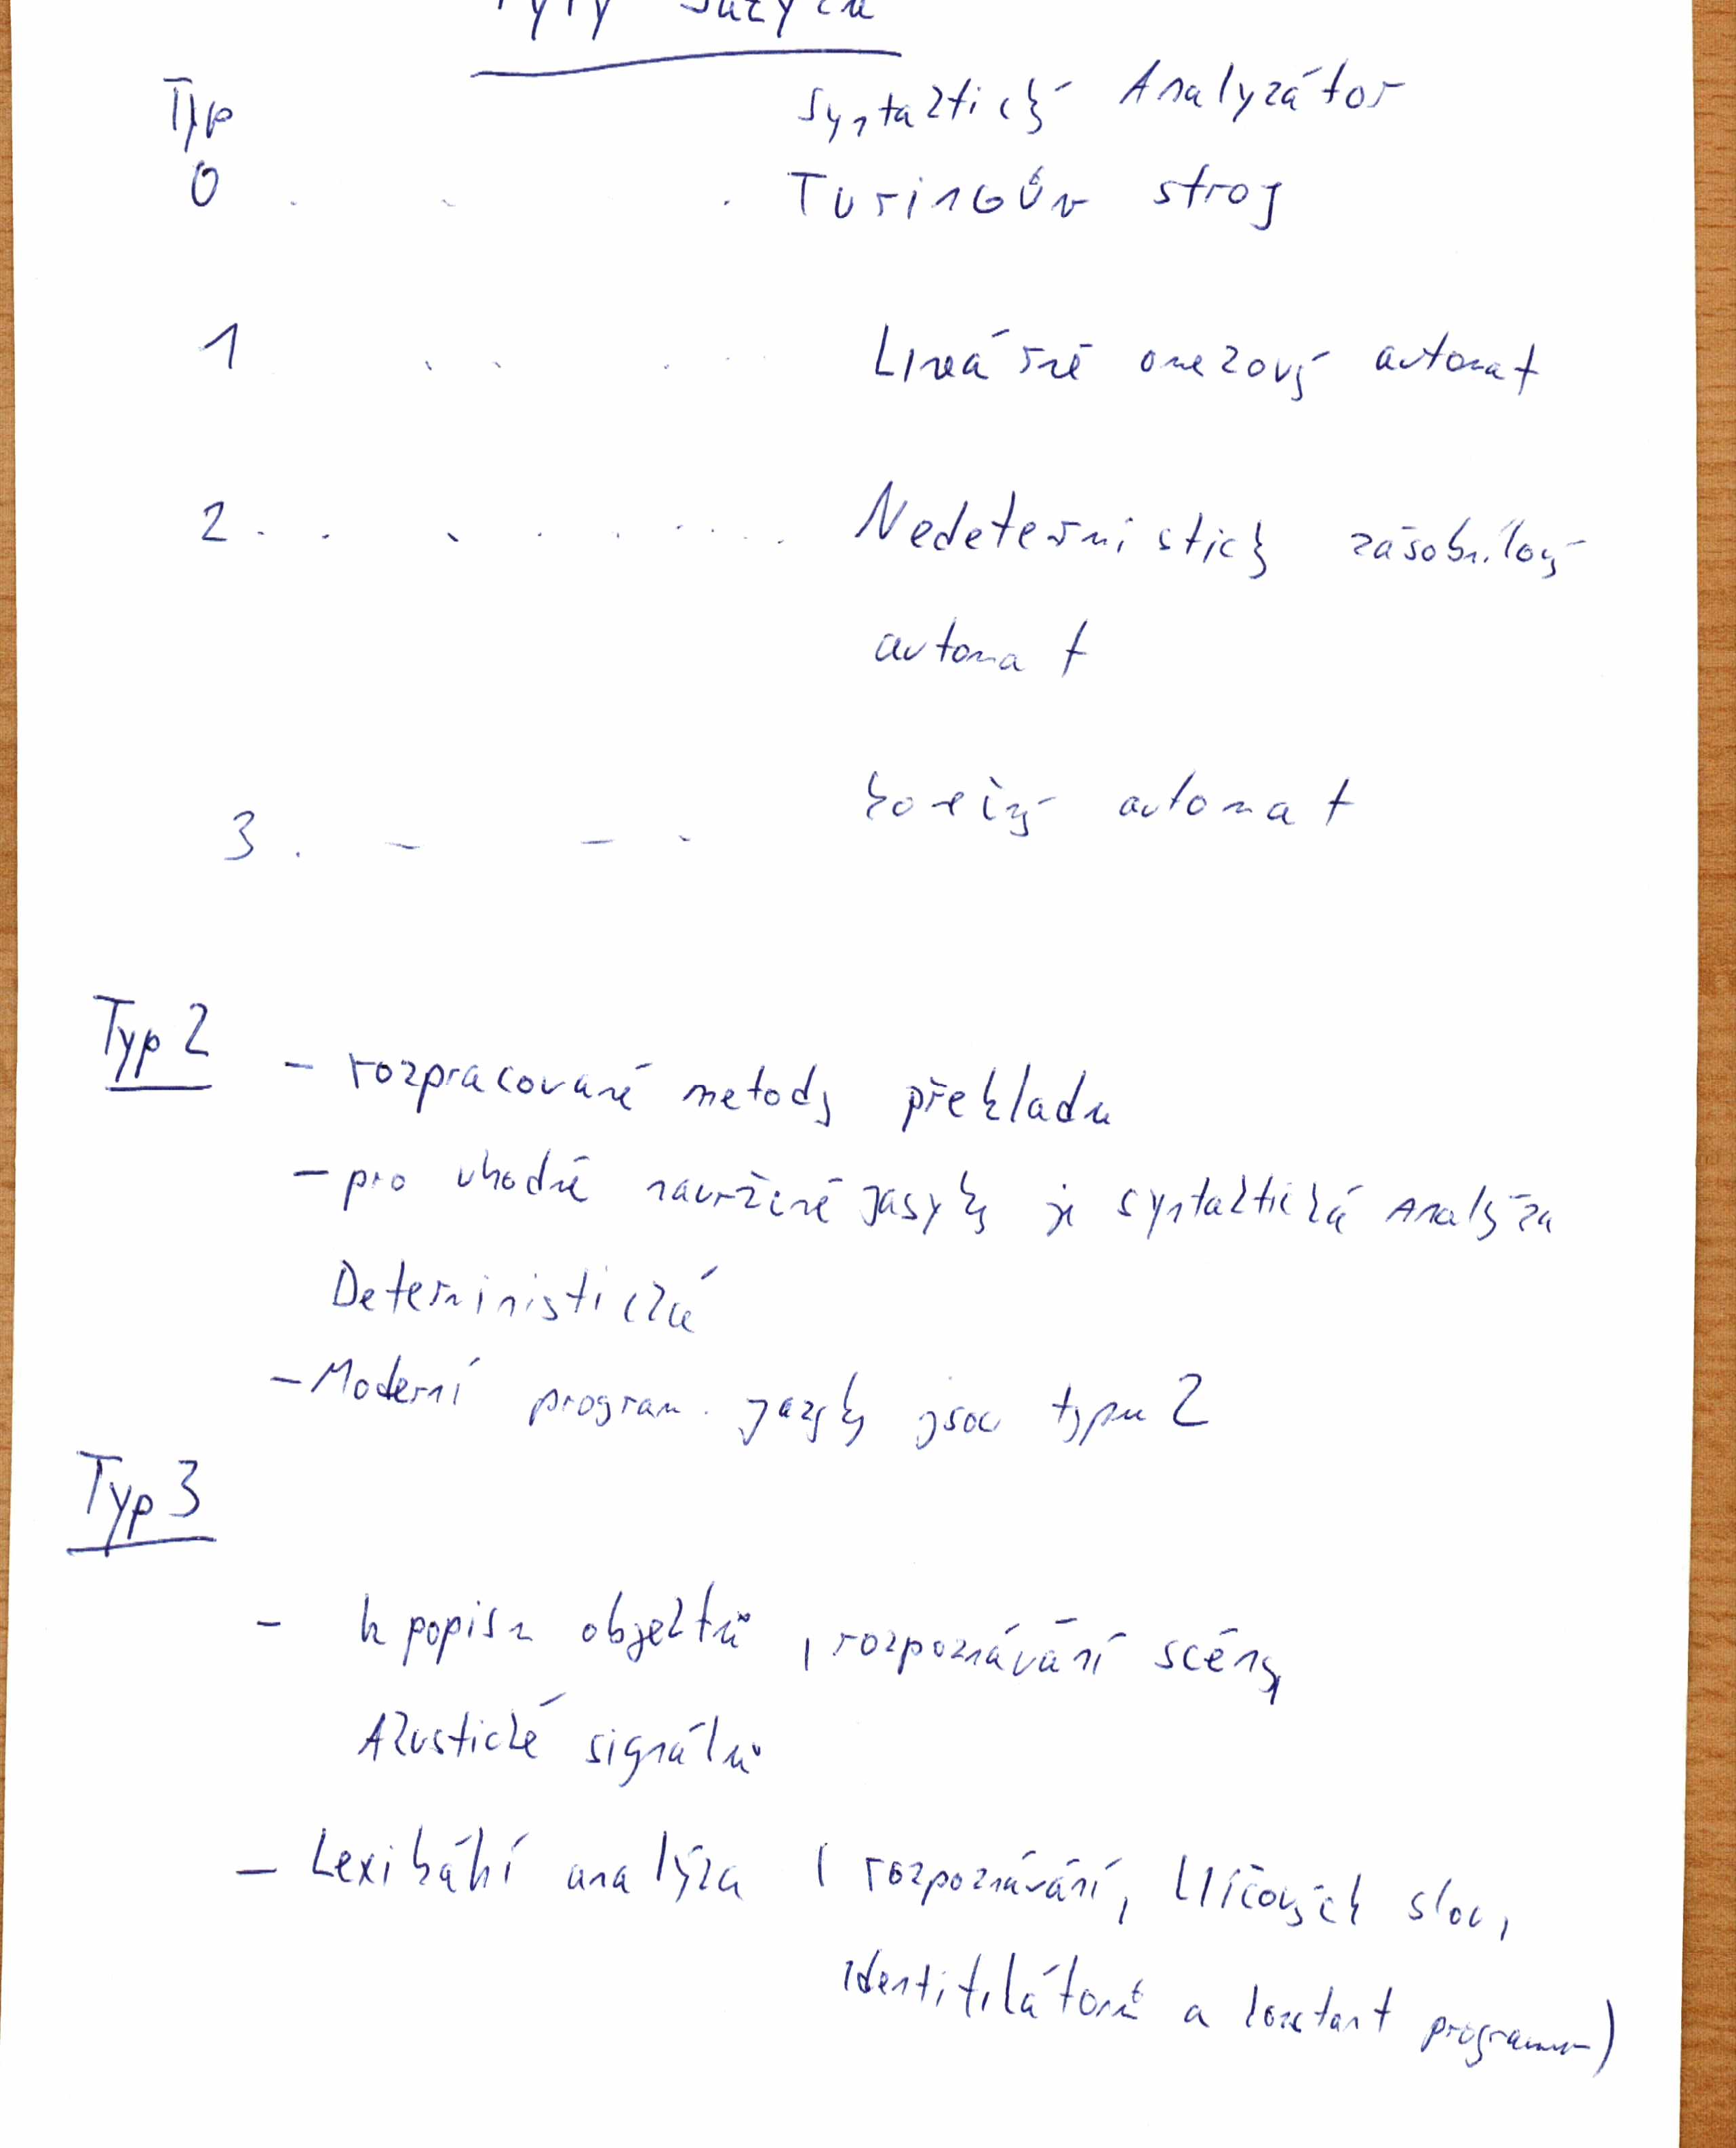 Typy Jazyků
Typ Syntaktický Analyzátor
0 . . . Turingův stroj
1 . . . . Lineárně omezový automat
2 . . . . . . . . . Nedeterministický zásobníkový
automat
3 . - - . konečný automat
Typ 2 - rozpracované metody překladu
- pro vhodně navržené jasyky je syntaktická Analýza
Deterministická
- Moderní program. jazyky jsou typu 2
Typ 3
- k popisu objektů, rozpoznávání scény
Akustické signálů
- Lexikální analýza ( rozpoznávání, klíčových slov,
identifikátorů a konstant programu)